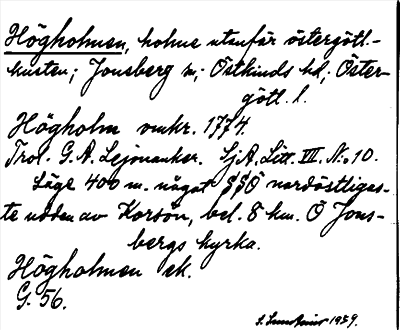 Högholmen, holme utanför östergötl.-
kusten; Jonsberg sn; Östkinds hd; Öster-
götl. l.
Högholm omkr. 1774.
Trol. G. A. Lejonanker. SjA. Litt. III. No 10.
Läge 400 m. något SSÖ nordöstligas-
te udden av Korsön, bel. 8 km. Ö Jons-
bergs kyrka.
Högholmen ek.
G. 56.
1939.